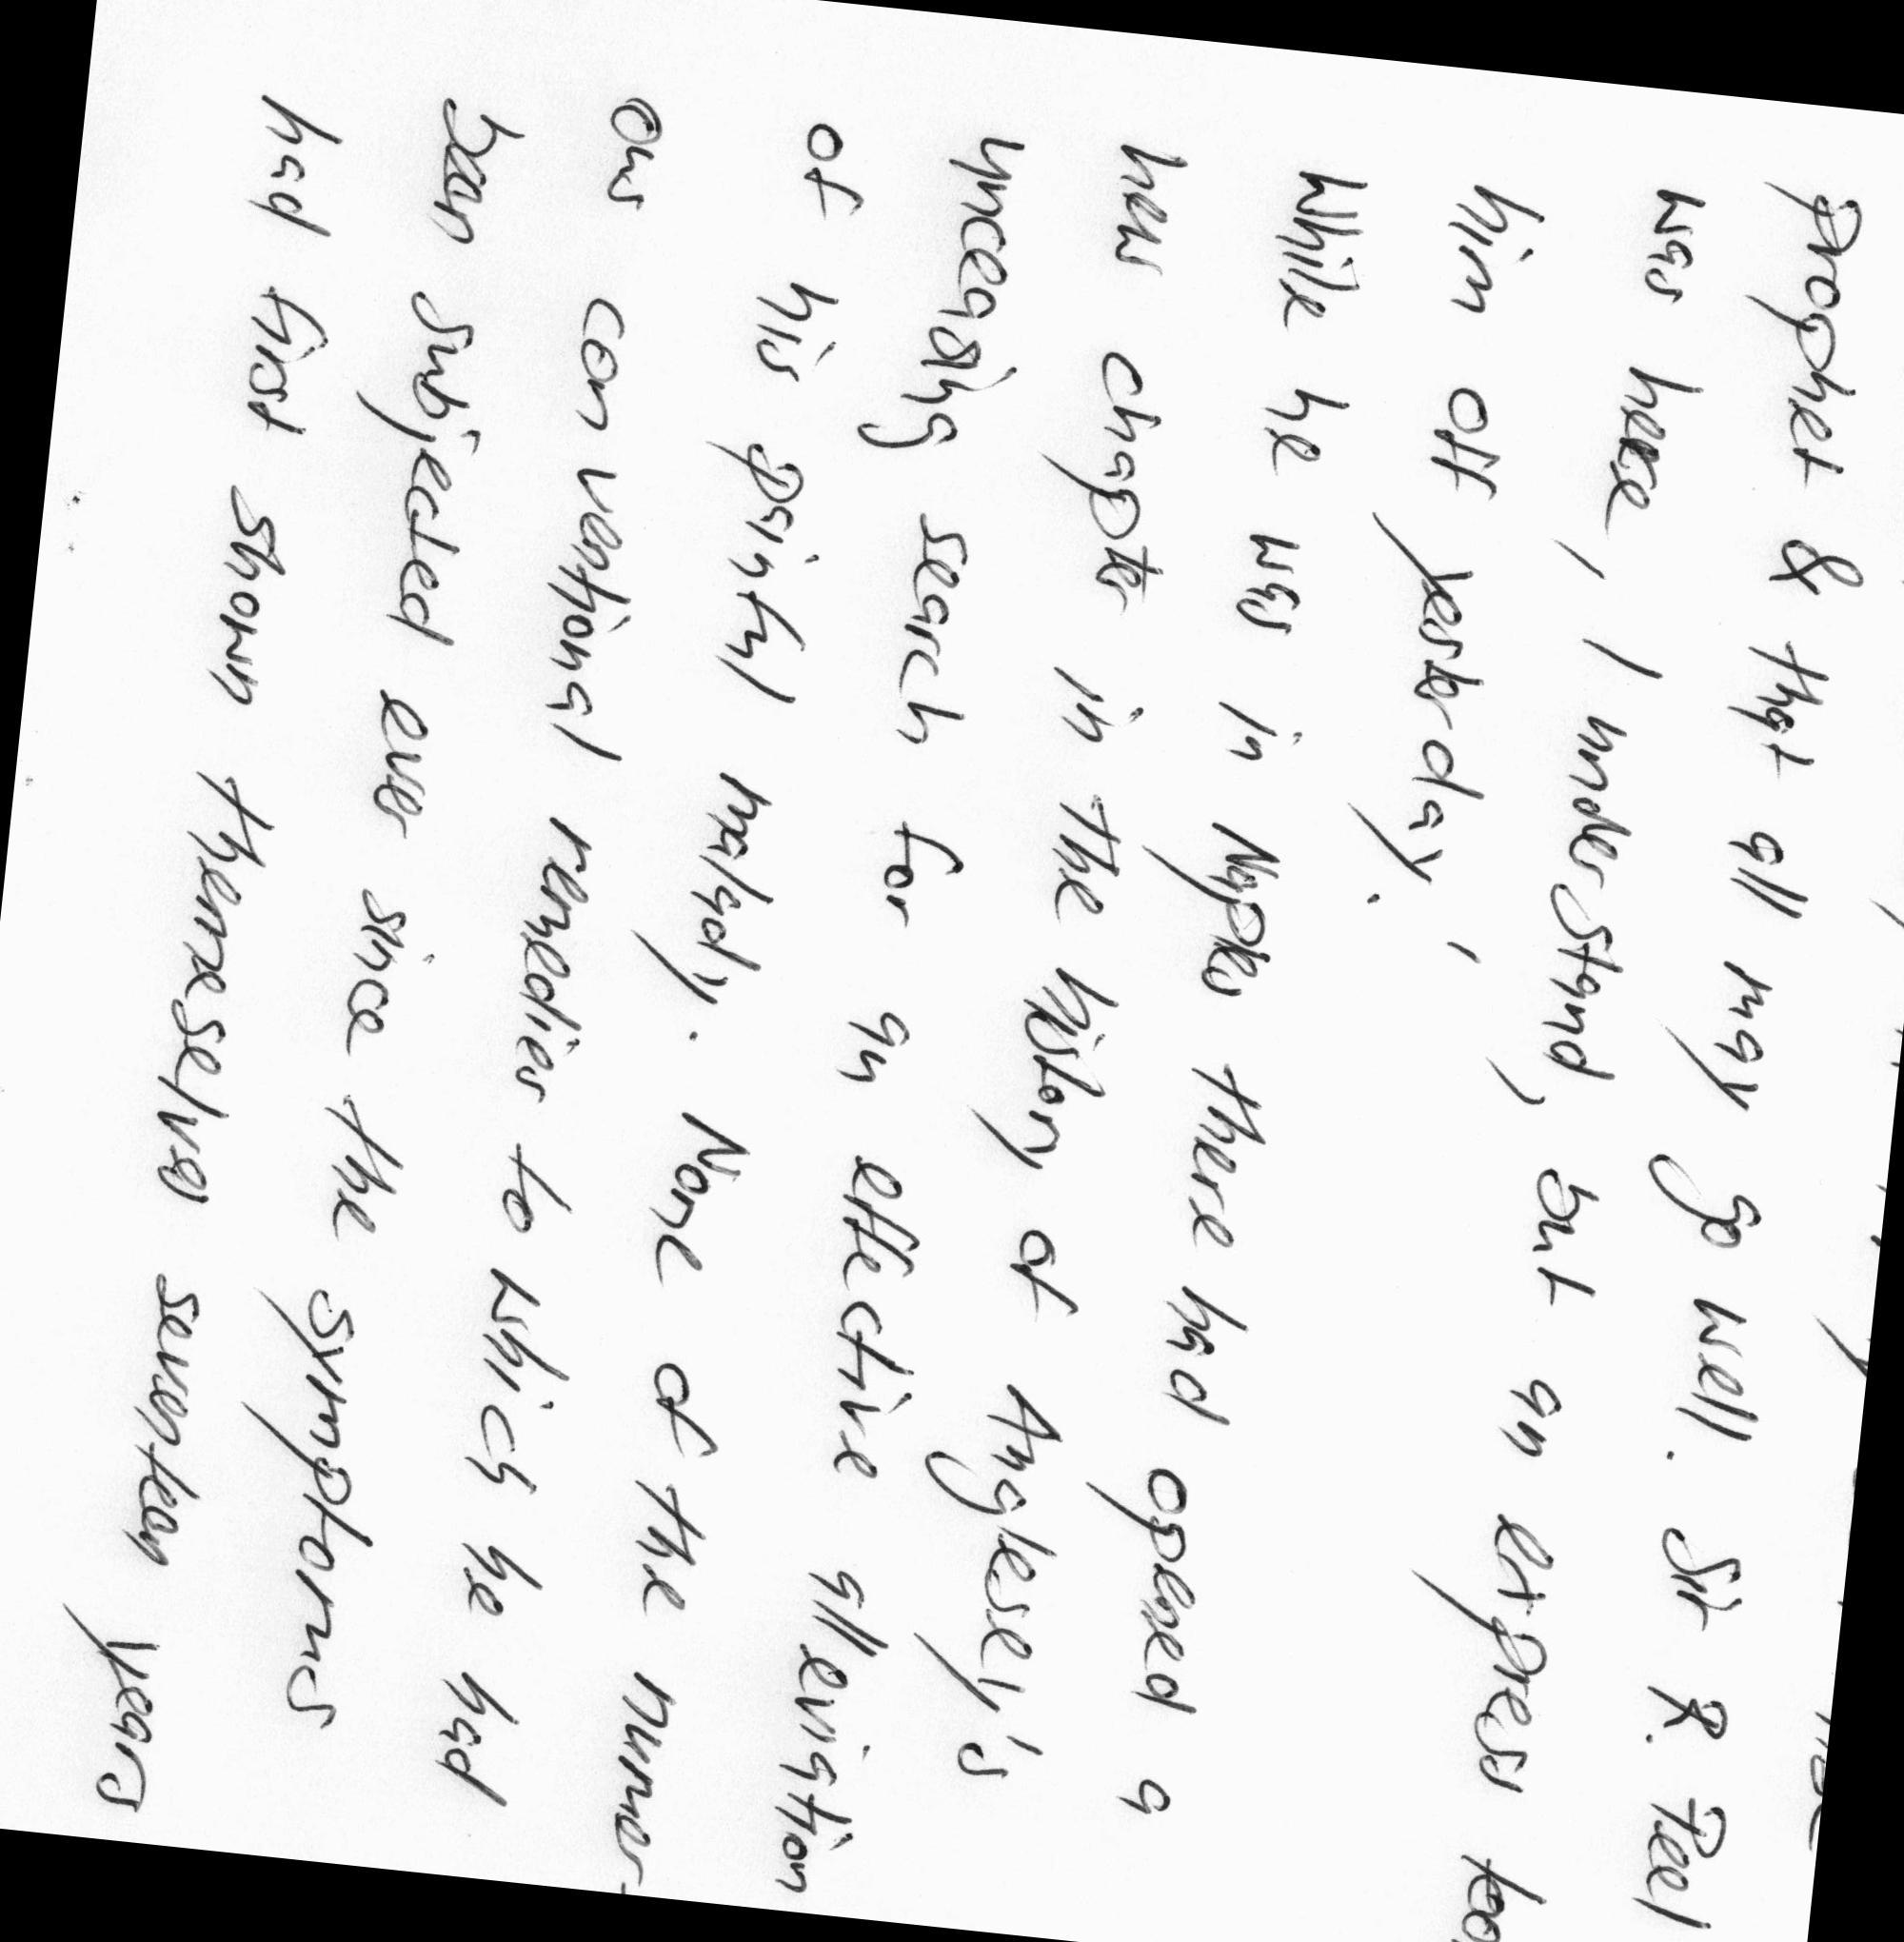 prophet & that all may go well. Sir R. Peel
was here, I understand, but an express too
him off yesterday.'
While he was in Naples there had opened a
new chapter in the history of Anglesey's
unceasing search for an effective alleviation
of his painful malady. None of the numer-
ous conventional remedies to which he had
been subjected ever since the symptoms
had first shown themselves seventeen years